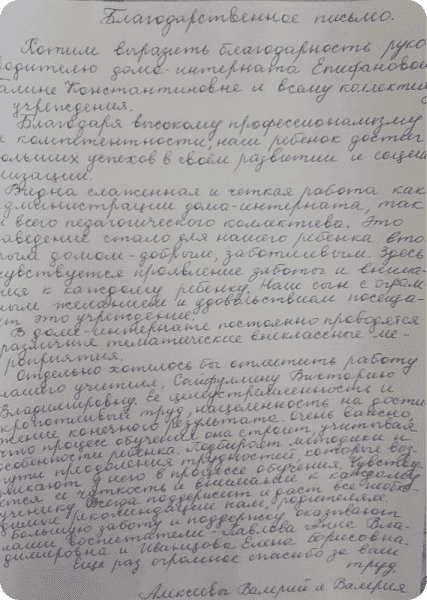 Благодарственное письмо.
Хотим выразить благодарность руко
водителю дома-интерната Епифановой
Галине Константиновне и всему коллектив
учреждения.
Благодаря высокому профессионализму
и компитентности, наш ребенок достиг
больших успехов в своём развитии и социа
лизации.
Видна слаженная и четкая работа как
администрации дома-интерната, так
и всего педагогического коллектива. Это
заведение стало для нашего ребенка вто
рым домом - добрым, заботливым. Здесь
чувствуется проявление заботы и внима-
ния к каждому ребенку. Наш сын с огром
ным желанием и удовольствием посеща-
ет это учреждение.
В доме-интернате постоянно проводятся
различные тематические внеклассные ме-
роприятия.
Отдельно хотелось бы отметить работу
нашего учителя, Сайфулину Викторию
Владимировну. Ее целеустремленности и
кропотливый труд, нацеленность на дости
жение конечного результата очень важно,
что процесс обучения она строит, учитывая
особенности ребенка. Подбирает методики и
пути преодоления трудностей, которые воз-
никают у него в процессе обучения. Чувству
ется ее чуткость и внимание к каждому
ученику. Всегда поддержит и даст все необхо-
димые рекомендации нам, родителям.
Большую заботу и поддержку оказывают
наши воспитатели Павлова Анна Вла-
димировна и Иванцова Елена Борисовна.
Еще раз огромное спасибо за ваш
труд.
Алексеевы Валерий и Валерия